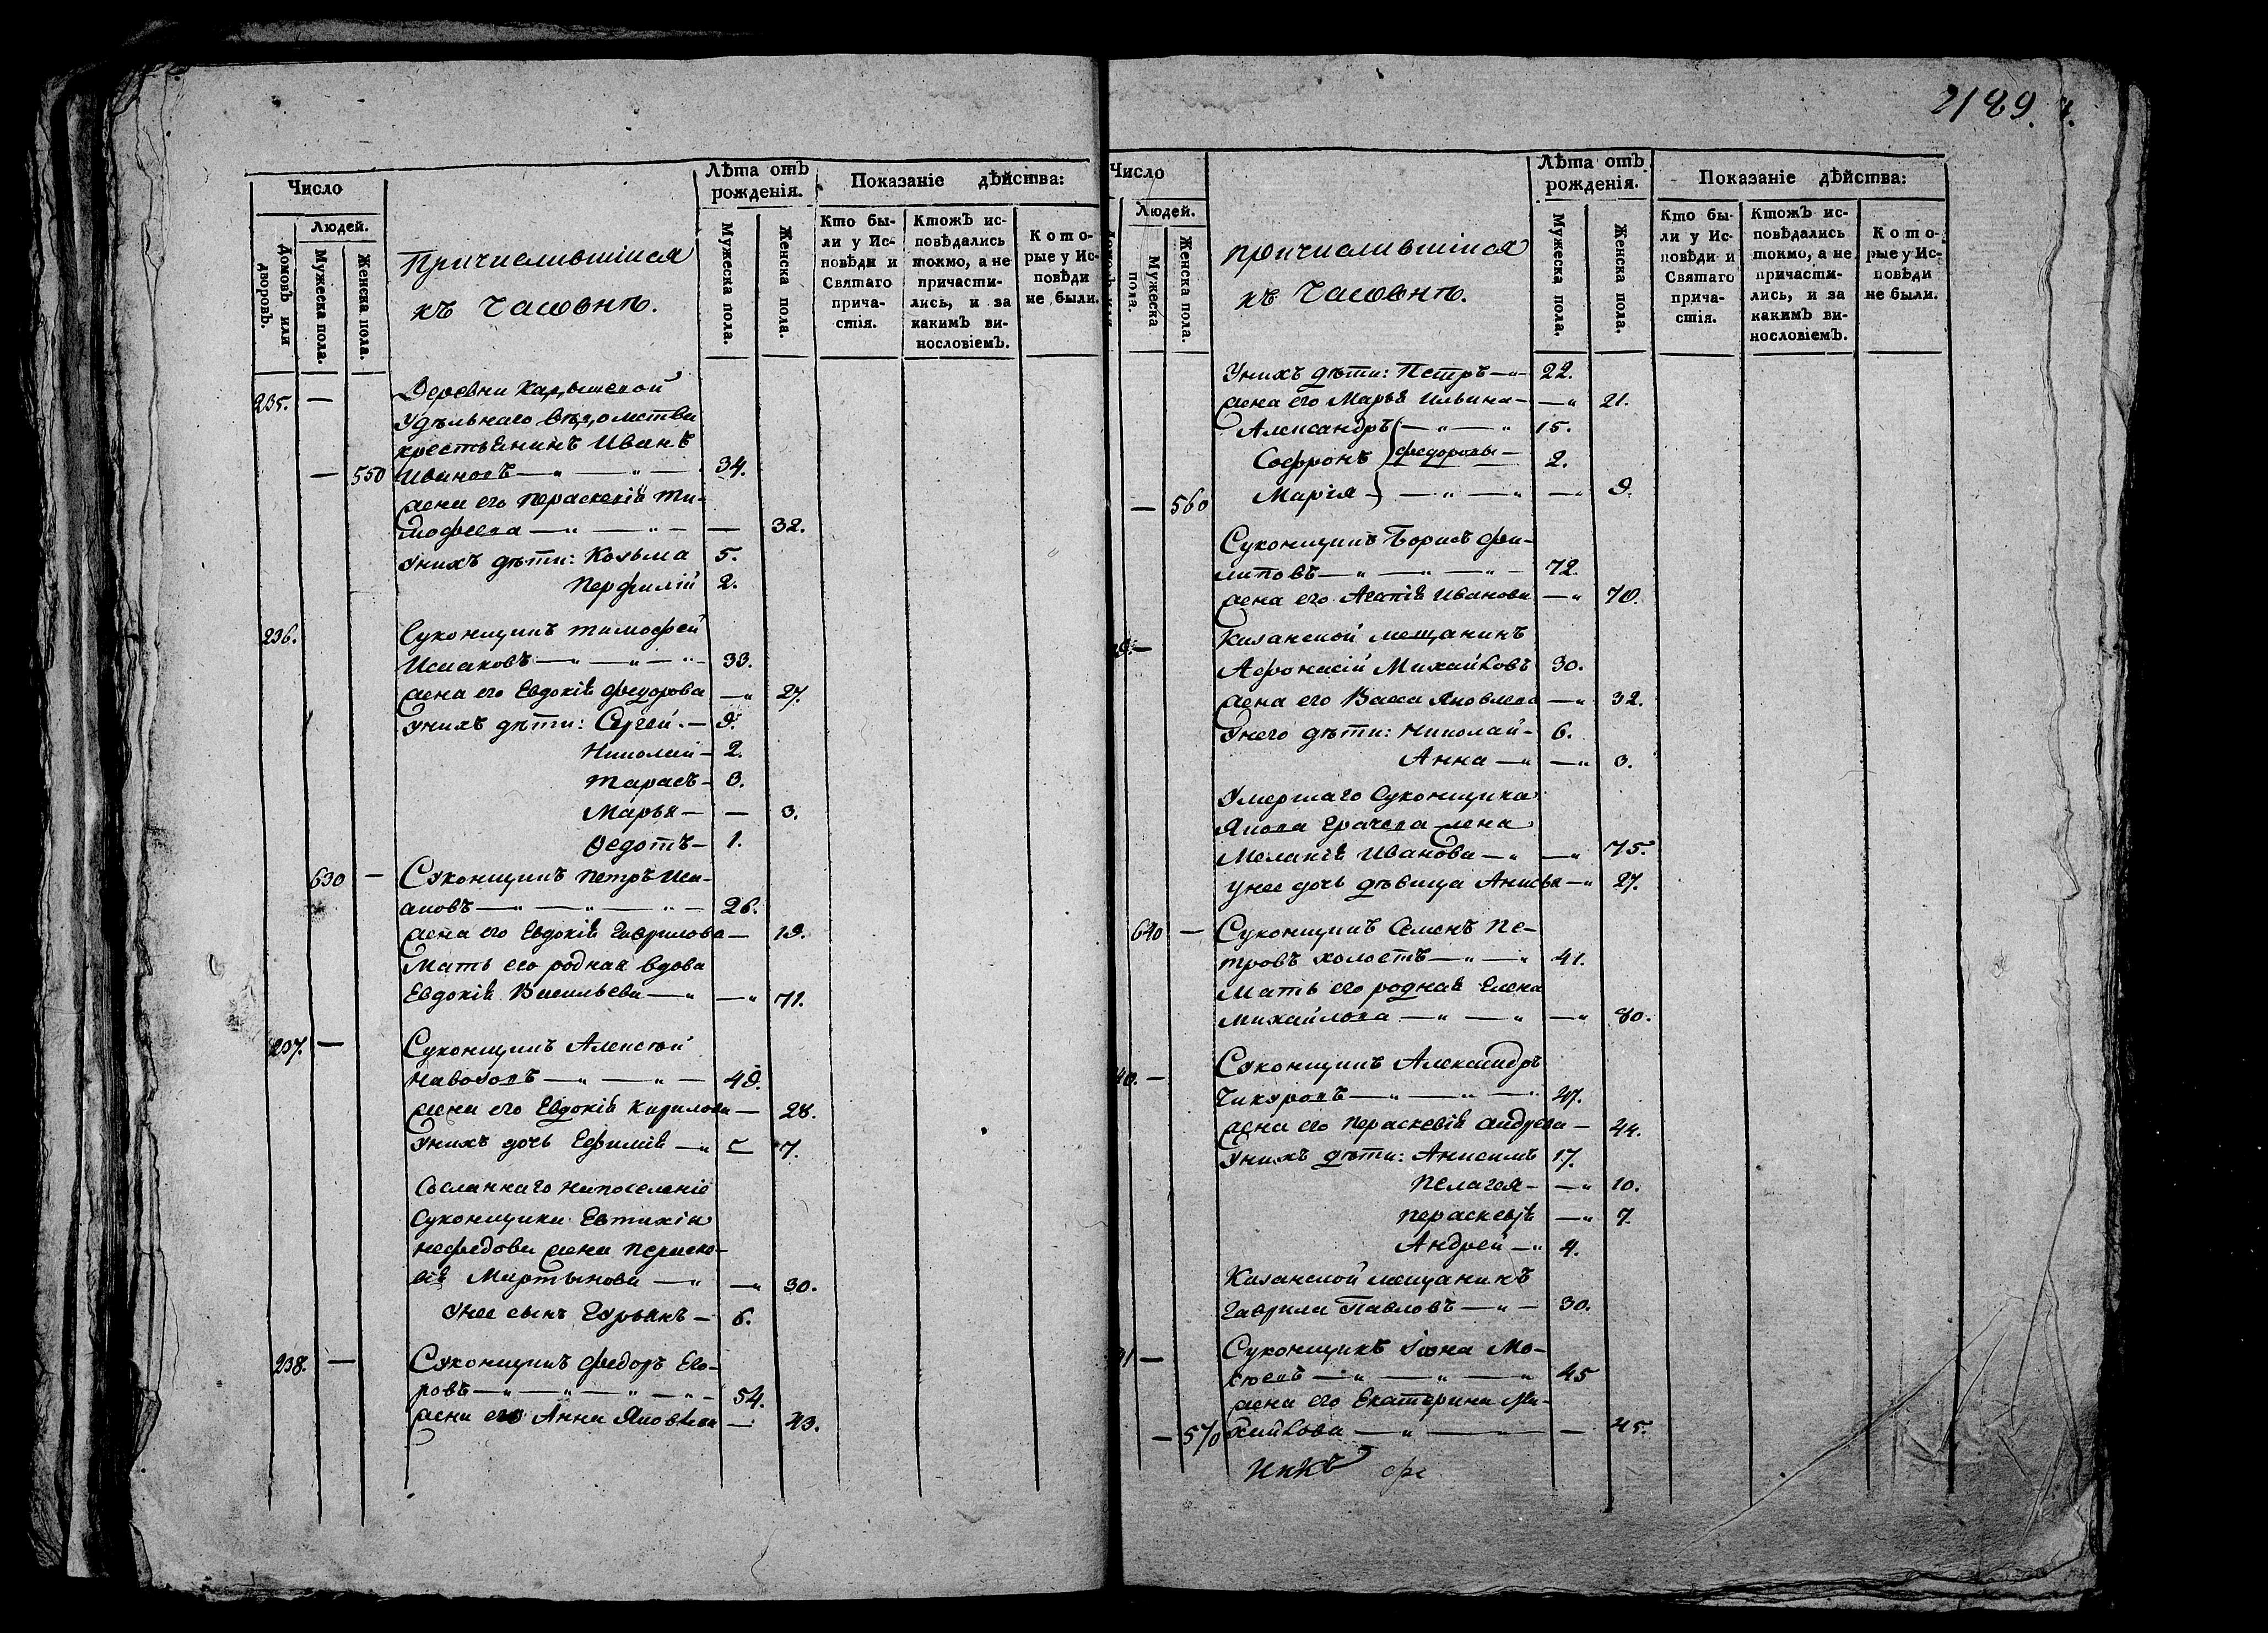 2189.
Число
Людей.
Домовъ или дворовъ.
Мужеска пола.
Женска пола.
Причислившіися
къ Часовнѣ.
Лѣта отъ рожденія.
Мужеска пола.
Женска пола.
Показаніе дѣйства:
Кто бы-
ли у Ис-
повѣди и
Святаго
прича-
стія.
Ктожъ ис-
повѣдались
токмо, а не
причасти-
лись, и за
какимъ ви-
нословіемъ.
Кото-
рые у Ис-
повѣди
не были.
235. — Деревни
Удѣльнаго вѣдомства
крестьянинъ Иванъ
— 550 Ивановъ — " — " — 34.
жена его Пераскевія Ти-
мофеева — " — " — — 32.
Унихъ дѣти: Козьма 5.
Перфилій 2.
236. Суконщикъ Тимофей
Исааковъ — " — " — " — 33.
жена его Евдокія Федорова — " 27.
Унихъ дѣти: Сергей — 9.
Николай — 2.
Тарасъ — 3.
Марья — — 3.
Ѳедотъ — 1.
630 — Суконщикъ Петръ Иса-
аковъ — " — " — " — 26.
жена его Евдокія Гаврилова — 19.
Мать его родная вдова
Евдокія Васильева — " — " 71.
237. — Суконщикъ Алексѣй
— " — " — 49.
жена его Евдокія Кирилова — 28.
Унихъ дочь Ефимія — " — 7.
Сосланнаго на поселеніе
Суконщика Евтихія
Нефедова жена Пераске-
вія Мартынова — " — " 30.
Унее сынъ Гурьянъ — 6.
238. — Суконщикъ Федоръ Его-
ровъ — " — " — " — " — 54.
жена его Анна Яковлева — 43.
Число
Людей.
Мужеска пола.
Женска пола.
Причислившіися
къ Часовнѣ.
Лѣта отъ рожденія.
Мужеска пола.
Женска пола.
Показаніе дѣйства:
Кто бы-
ли у Ис-
повѣди и
Святаго
прича-
стія.
Ктожъ ис-
повѣдались
токмо, а не
причасти-
лись, и за
какимъ ви-
нословіемъ.
Кото-
рые у Ис-
повѣди
не были.
Унихъ дѣти: Петръ — " 22.
жена его Марья Ильина — — " 21.
Александръ — " — " 15.
Софронъ Федоровы — 2.
— 560 Марія — " — " — " 9.
Суконщикъ Борисъ Фи-
липовъ — " — " — " — 72.
жена его Агапія Иванова — " 70.
9. — Казанской мещанинъ
Афонасій Михайловъ 30.
жена его Васса Яковлева — " 32.
Унего дѣти: Николай — 6.
Анна — " — " 3.
Умершаго Суконщика
Якова Грачева жена
Меланія Иванова — " — " 75.
Унее дочь дѣвица Анисья — " 27.
640 — Суконщикъ Семенъ Пе-
тровъ холостъ — " — " 41.
Мать его родная Елена
Михайлова — " — " — " 80.
40. — Суконщикъ Александръ
Чикуровъ — " — " — " 47.
жена его Пераскевія Андреева — 44.
Унихъ дѣти: Анисимъ 17.
Пелагея — — " 10.
Пераскевія — " 7.
Андрей — " 4.
Казанской мещанинъ
Гаврила Павловъ — " — 30.
41 — Суконщикъ Іона Мо-
— " — " — " 45
жена его Екатерина Ми-
— 570 хайлова — " — — 45.